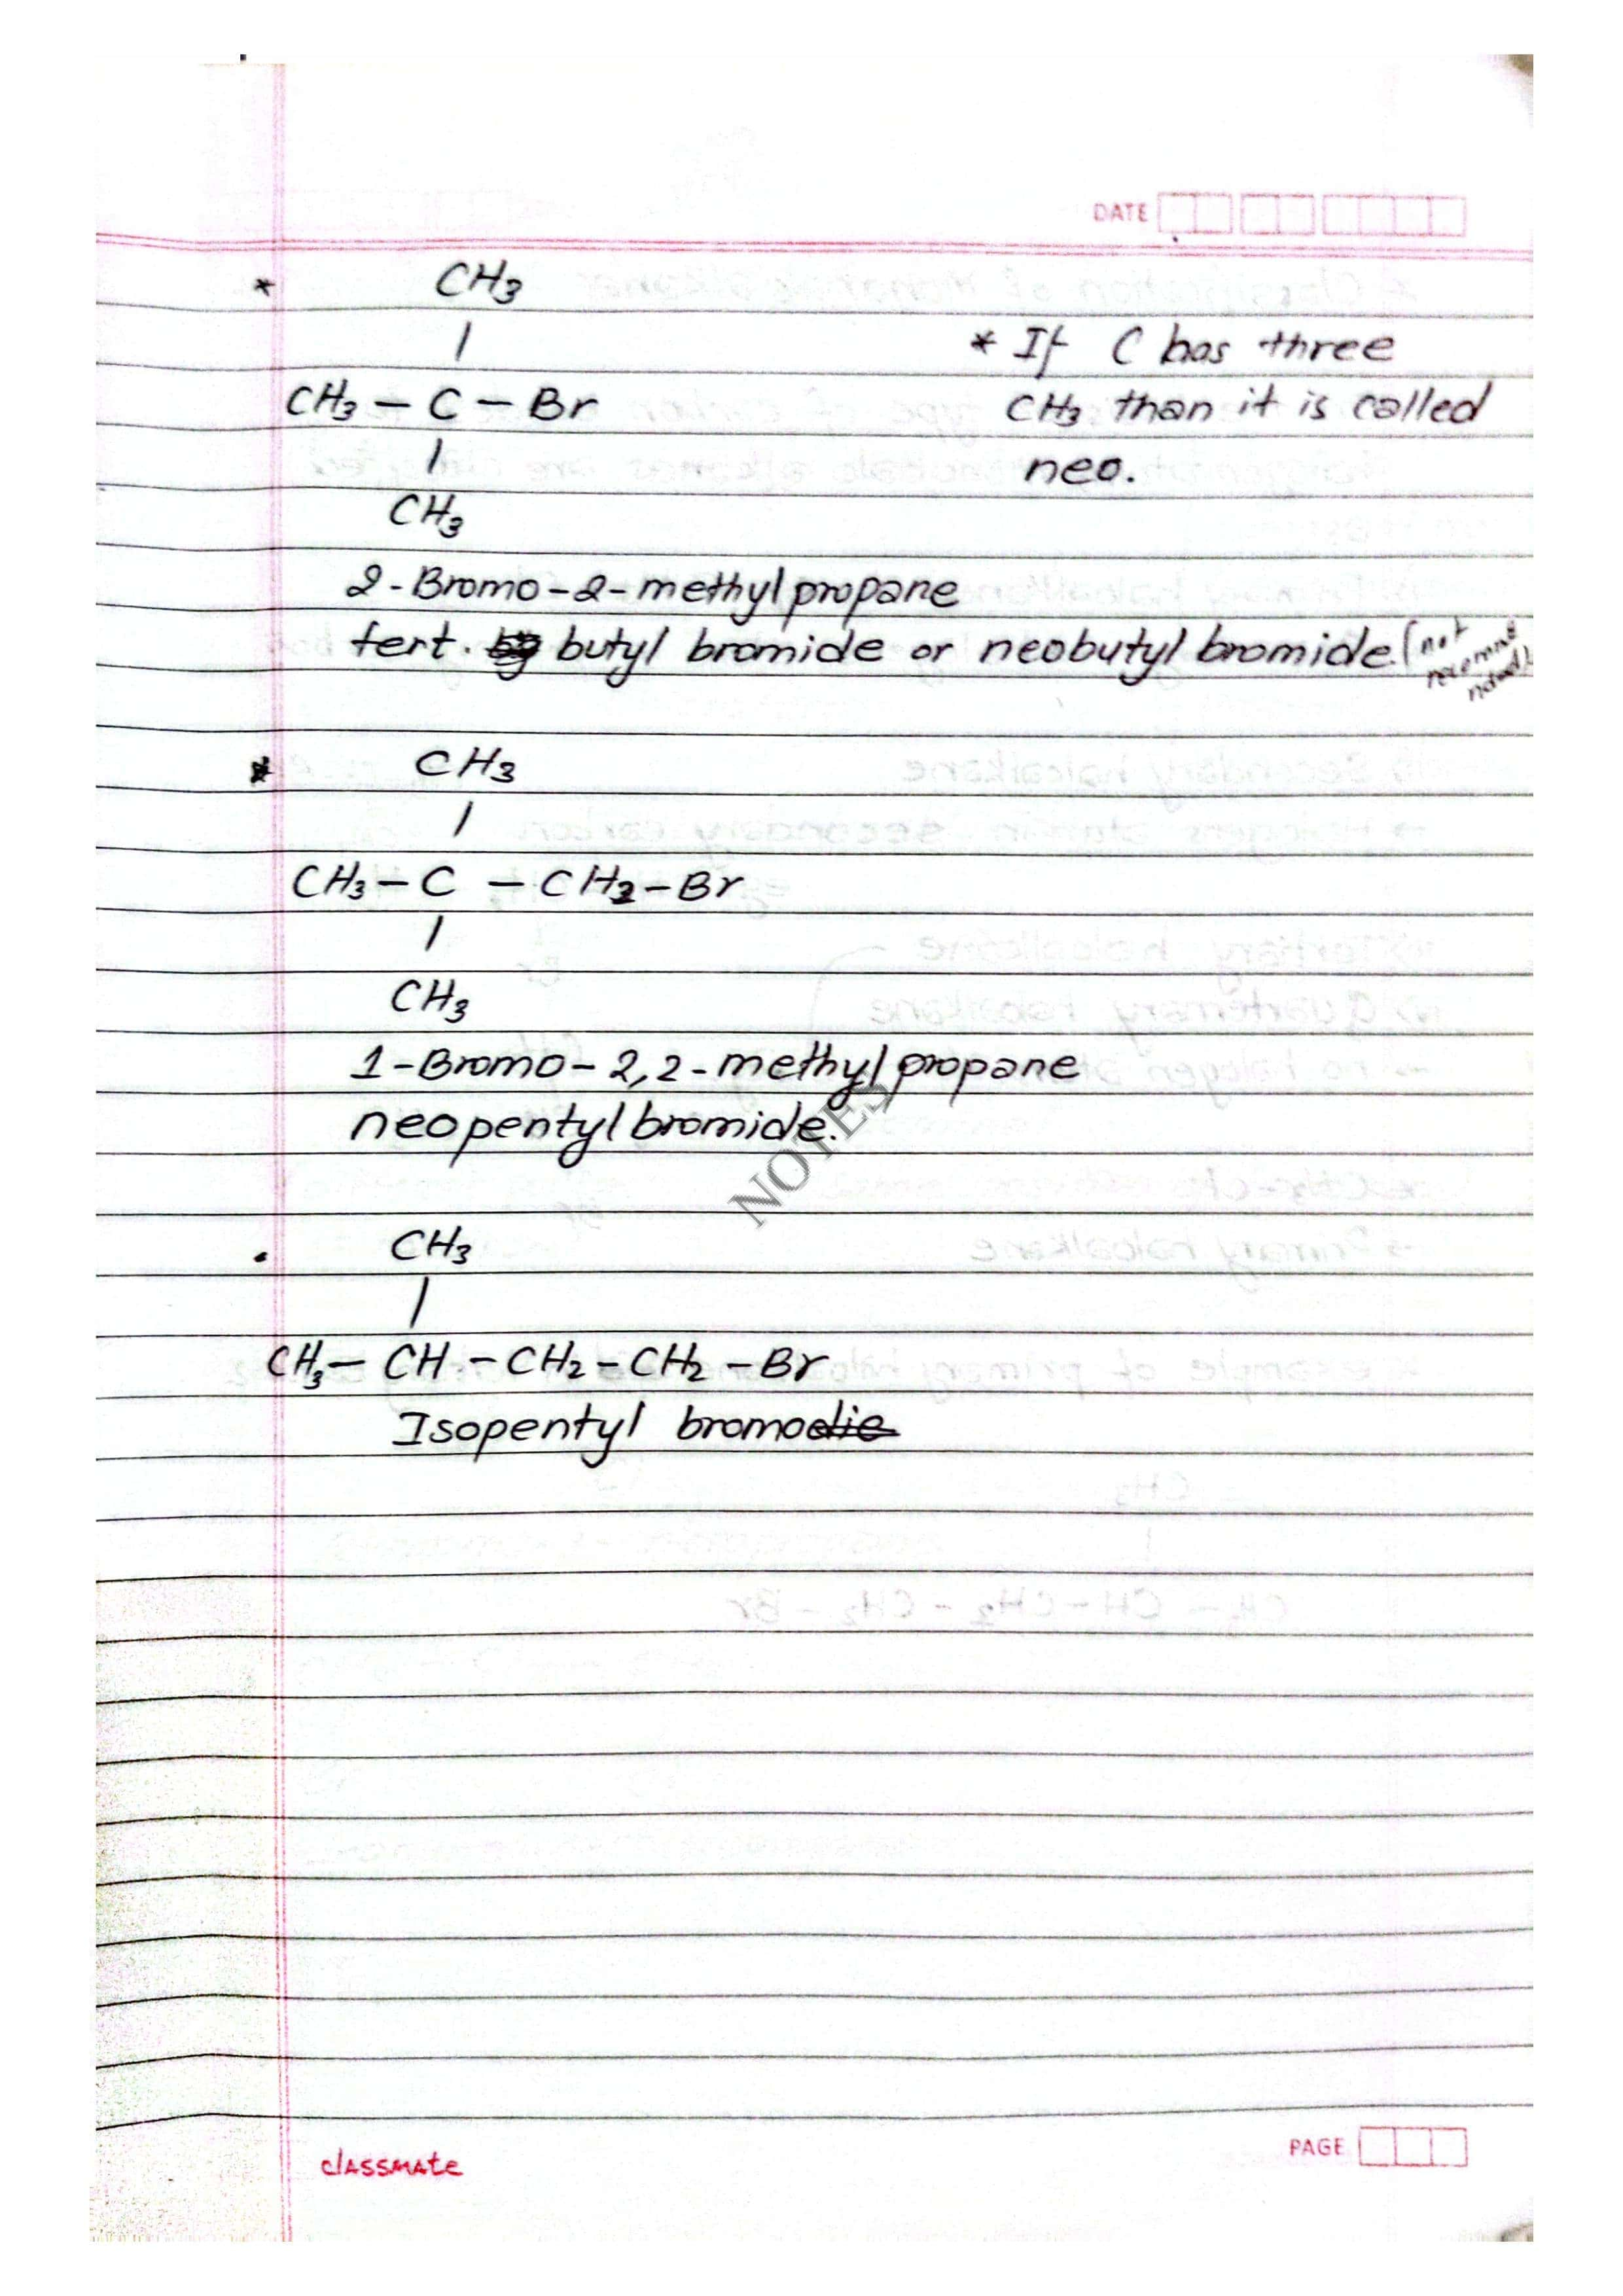 DATE
* CH3
|
* If C has three
CH3 – C – Br
CH3 than it is called
|
neo.
CH3
2-Bromo-2-methylpropane
tert. butyl bromide or neobutyl bromide. (not
* CH3
|
CH3 – C – CH2 – Br
|
CH3
1-Bromo-2,2-methylpropane
neopentylbromide.
NOTES
. CH3
|
CH3 – CH – CH2 – CH2 – Br
Isopentyl bromodie
classmate
PAGE